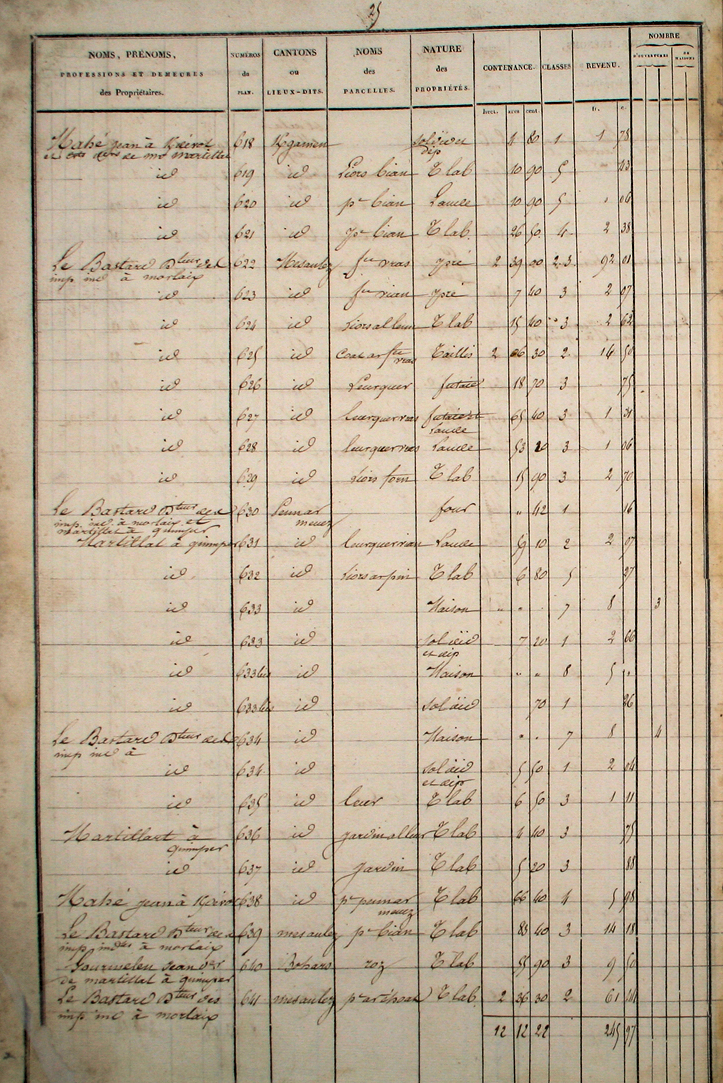 25
NOMS, PRÉNOMS, PROFESSIONS ET DEMEURES des Propriétaires. NUMÉROS du PLAN. CANTONS ou LIEUX-DITS. NOMS des PARCELLES. NATURE des PROPRIÉTÉS. CONTENANCE. CLASSES. REVENU. NOMBRE D'OUVERTURES DE MAISONS
hect. ares cent. fr. c.
Mahé jean à 618 Kgamen sol 4 80 1 1 78
et de mr martillat dép
id 619 id Liors bian T lab 10 90 5 43
id 620 id pr bian Lande 10 90 5 " 06
id 621 id pr bian T lab 26 50 4 2 38
Le Bastard Dteur des 622 Mesaulez fn vras pré 2 39 00 2.3 92 01
imp ind à morlaix
id 623 id fn vian pré 7 40 3 2 07
id 624 id T lab 15 40 3 2 62
id 625 id coat ar fn vras Taillis 2 66 30 2 14 50
id 626 id Leurguer futaie 18 70 3 75
id 627 id leurguer vras futaie et Lande 65 40 3 1 31
id 628 id leurguer vras Lande 53 20 3 1 06
id 629 id Liors forn T lab 15 90 3 2 70
Le Bastard Dteur des 630 Penmar meuez four " 42 1 16
imp ind à morlaix et
martillat à quimper
Martillat à quimper 631 id leurguer vian Lande 59 10 2 2 07
id 632 id liors ar pin T lab 6 80 5 27
id 633 id Maison " " 7 8 3
id 633 id sol 7 20 1 2 66
et dép
id 633 bis id Maison " " 8 5 "
id 633 bis id sol 70 1 26
Le Bastard Dteur des 634 id Maison " " 7 8 4
imp ind à
id 634 id sol 5 50 1 2 04
et dép
id 635 id leur T lab 6 50 3 1 11
Martillart à quimper 636 id T lab 4 40 3 75
id 637 id jardin T lab 5 20 3 88
Mahé jean à 638 id pr penmar meuez T lab 66 40 4 5 98
Le Bastard Dteur des 639 mesaulez pr bian T lab 83 40 3 14 18
imp indtes à morlaix
jean 640 Bohars roz T lab 55 90 3 9 50
de martillat à quimper
Le Bastard Dteur des 641 mesaulez T lab 2 36 30 2 61 44
imp ind à morlaix
12 12 22 245 97